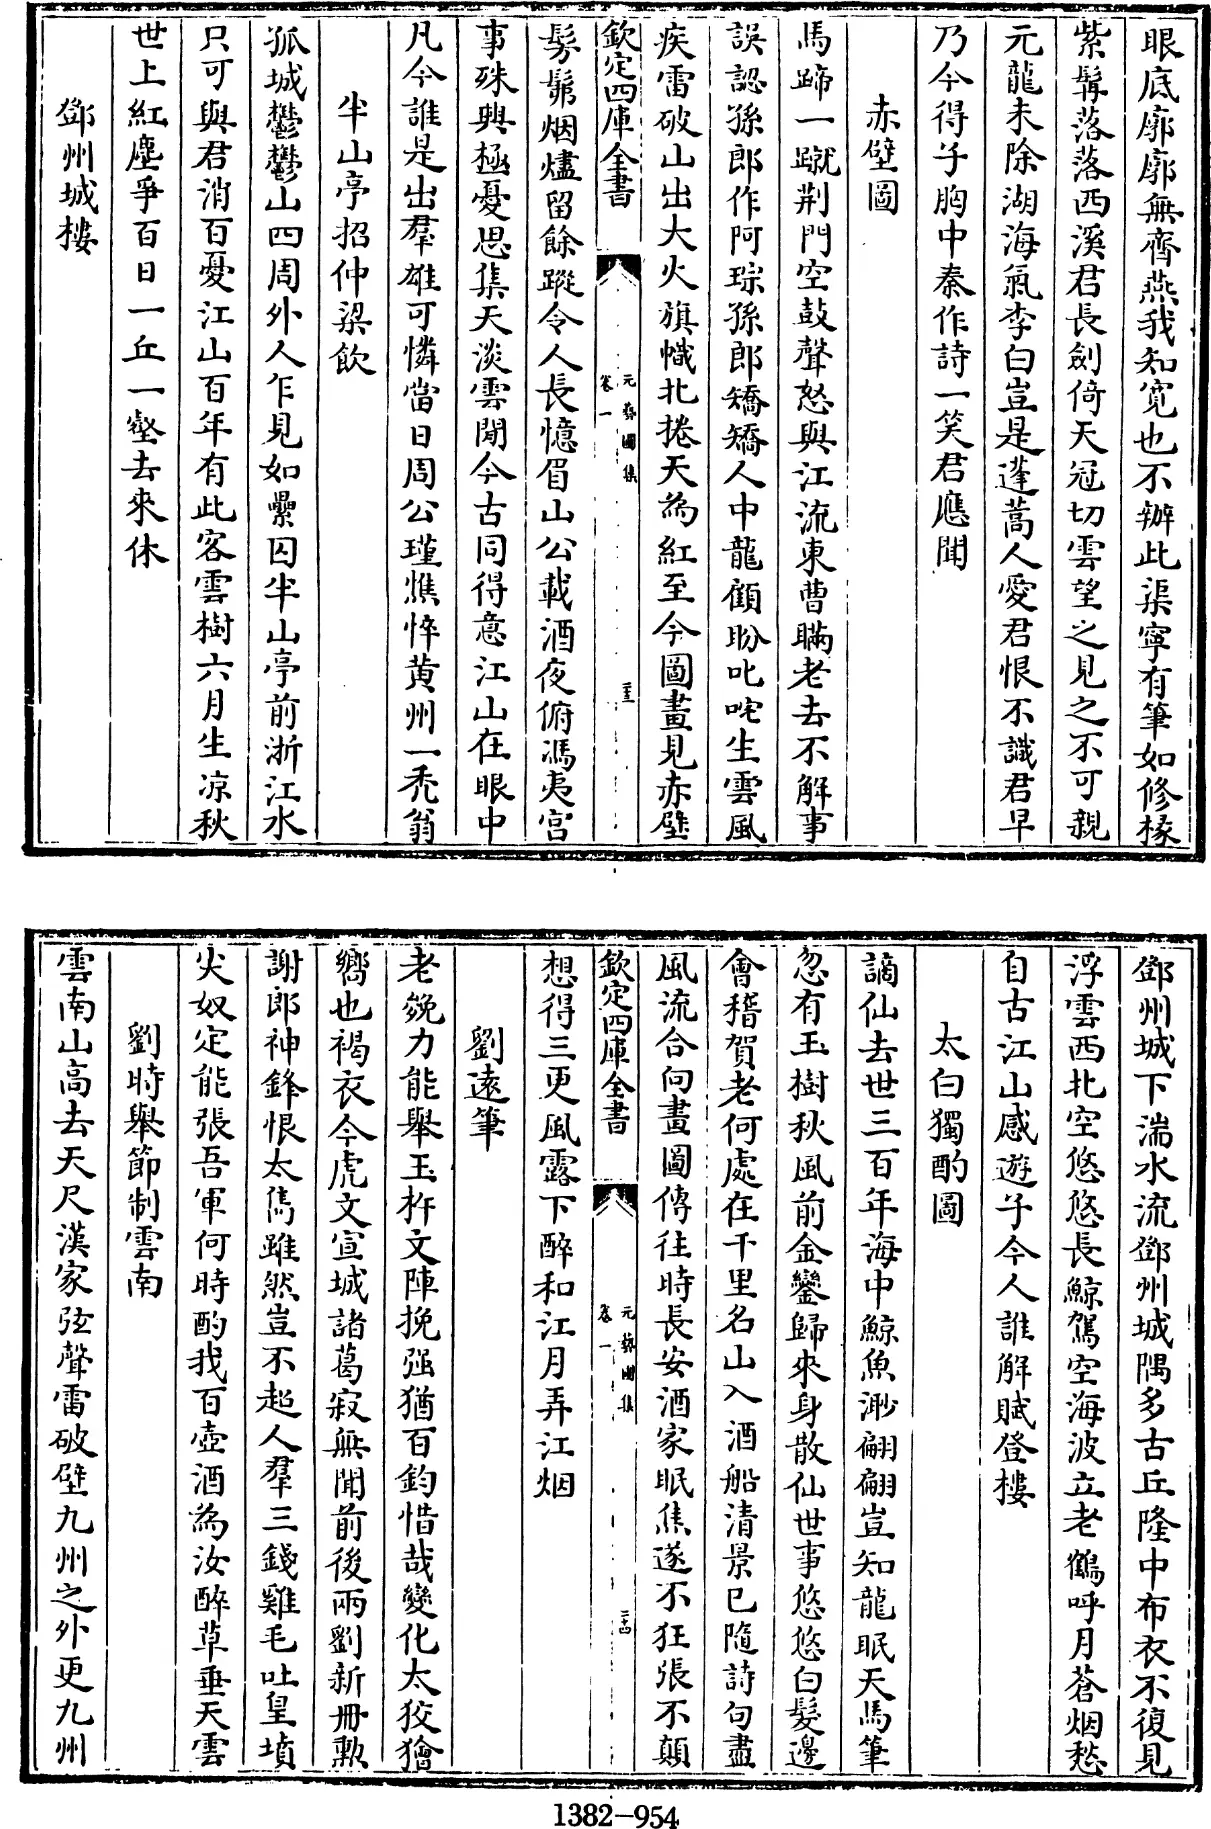 眼底廓廓無齊燕我知寛也不辦此渠寧有筆如修椽
紫髯落落西溪君長劍倚天冠切雲望之見之不可親
元龍未除湖海氣李白豈是蓬蒿人愛君恨不識君早
乃今得子胸中秦作詩一笑君應聞
赤壁圖
馬蹄一蹴荆門空鼓聲怒與江流東曹瞞老去不解事
誤認孫郎作阿琮孫郎矯矯人中龍顧盼叱咤生雲風
疾雷破山出大火旗幟北捲天為紅至今圖畫見赤壁
欽定四庫全書
元藝圃集
卷一
二十三
髣髴烟燼留餘蹤令人長憶眉山公載酒夜俯馮夷宫
事殊興極憂思集天淡雲閒今古同得意江山在眼中
凡今誰是出羣雄可憐當日周公瑾憔悴黄州一秃翁
半山亭招仲梁飲
孤城鬱鬱山四周外人乍見如纍囚半山亭前浙江水
只可與君消百憂江山百年有此客雲樹六月生凉秋
世上紅塵爭百日一丘一壑去來休
鄧州城樓
鄧州城下湍水流鄧州城隅多古丘隆中布衣不復見
浮雲西北空悠悠長鯨駕空海波立老鶴呼月蒼烟愁
自古江山感遊子今人誰解賦登樓
太白獨酌圖
謫仙去世三百年海中鯨魚渺翩翩豈知龍眠天馬筆
忽有玉樹秋風前金鑾歸來身散仙世事悠悠白髮邊
會稽賀老何處在千里名山入酒船清景已隨詩句盡
風流合向畫圖傳往時長安酒家眠焦遂不狂張不顛
欽定四庫全書
元藝圃集
卷一
二十四
想得三更風露下醉和江月弄江烟
劉遠筆
老㕙力能舉玉杵文陣挽强猶百鈞惜哉變化太狡獪
嚮也褐衣今虎文宣城諸葛寂無聞前後兩劉新册勲
謝郎神鋒恨太雋雖然豈不超人羣三錢雞毛吐皇墳
尖奴定能張吾軍何時酌我百壺酒為汝醉草垂天雲
劉時舉節制雲南
雲南山高去天尺漢家弦聲雷破壁九州之外更九州
1382-954